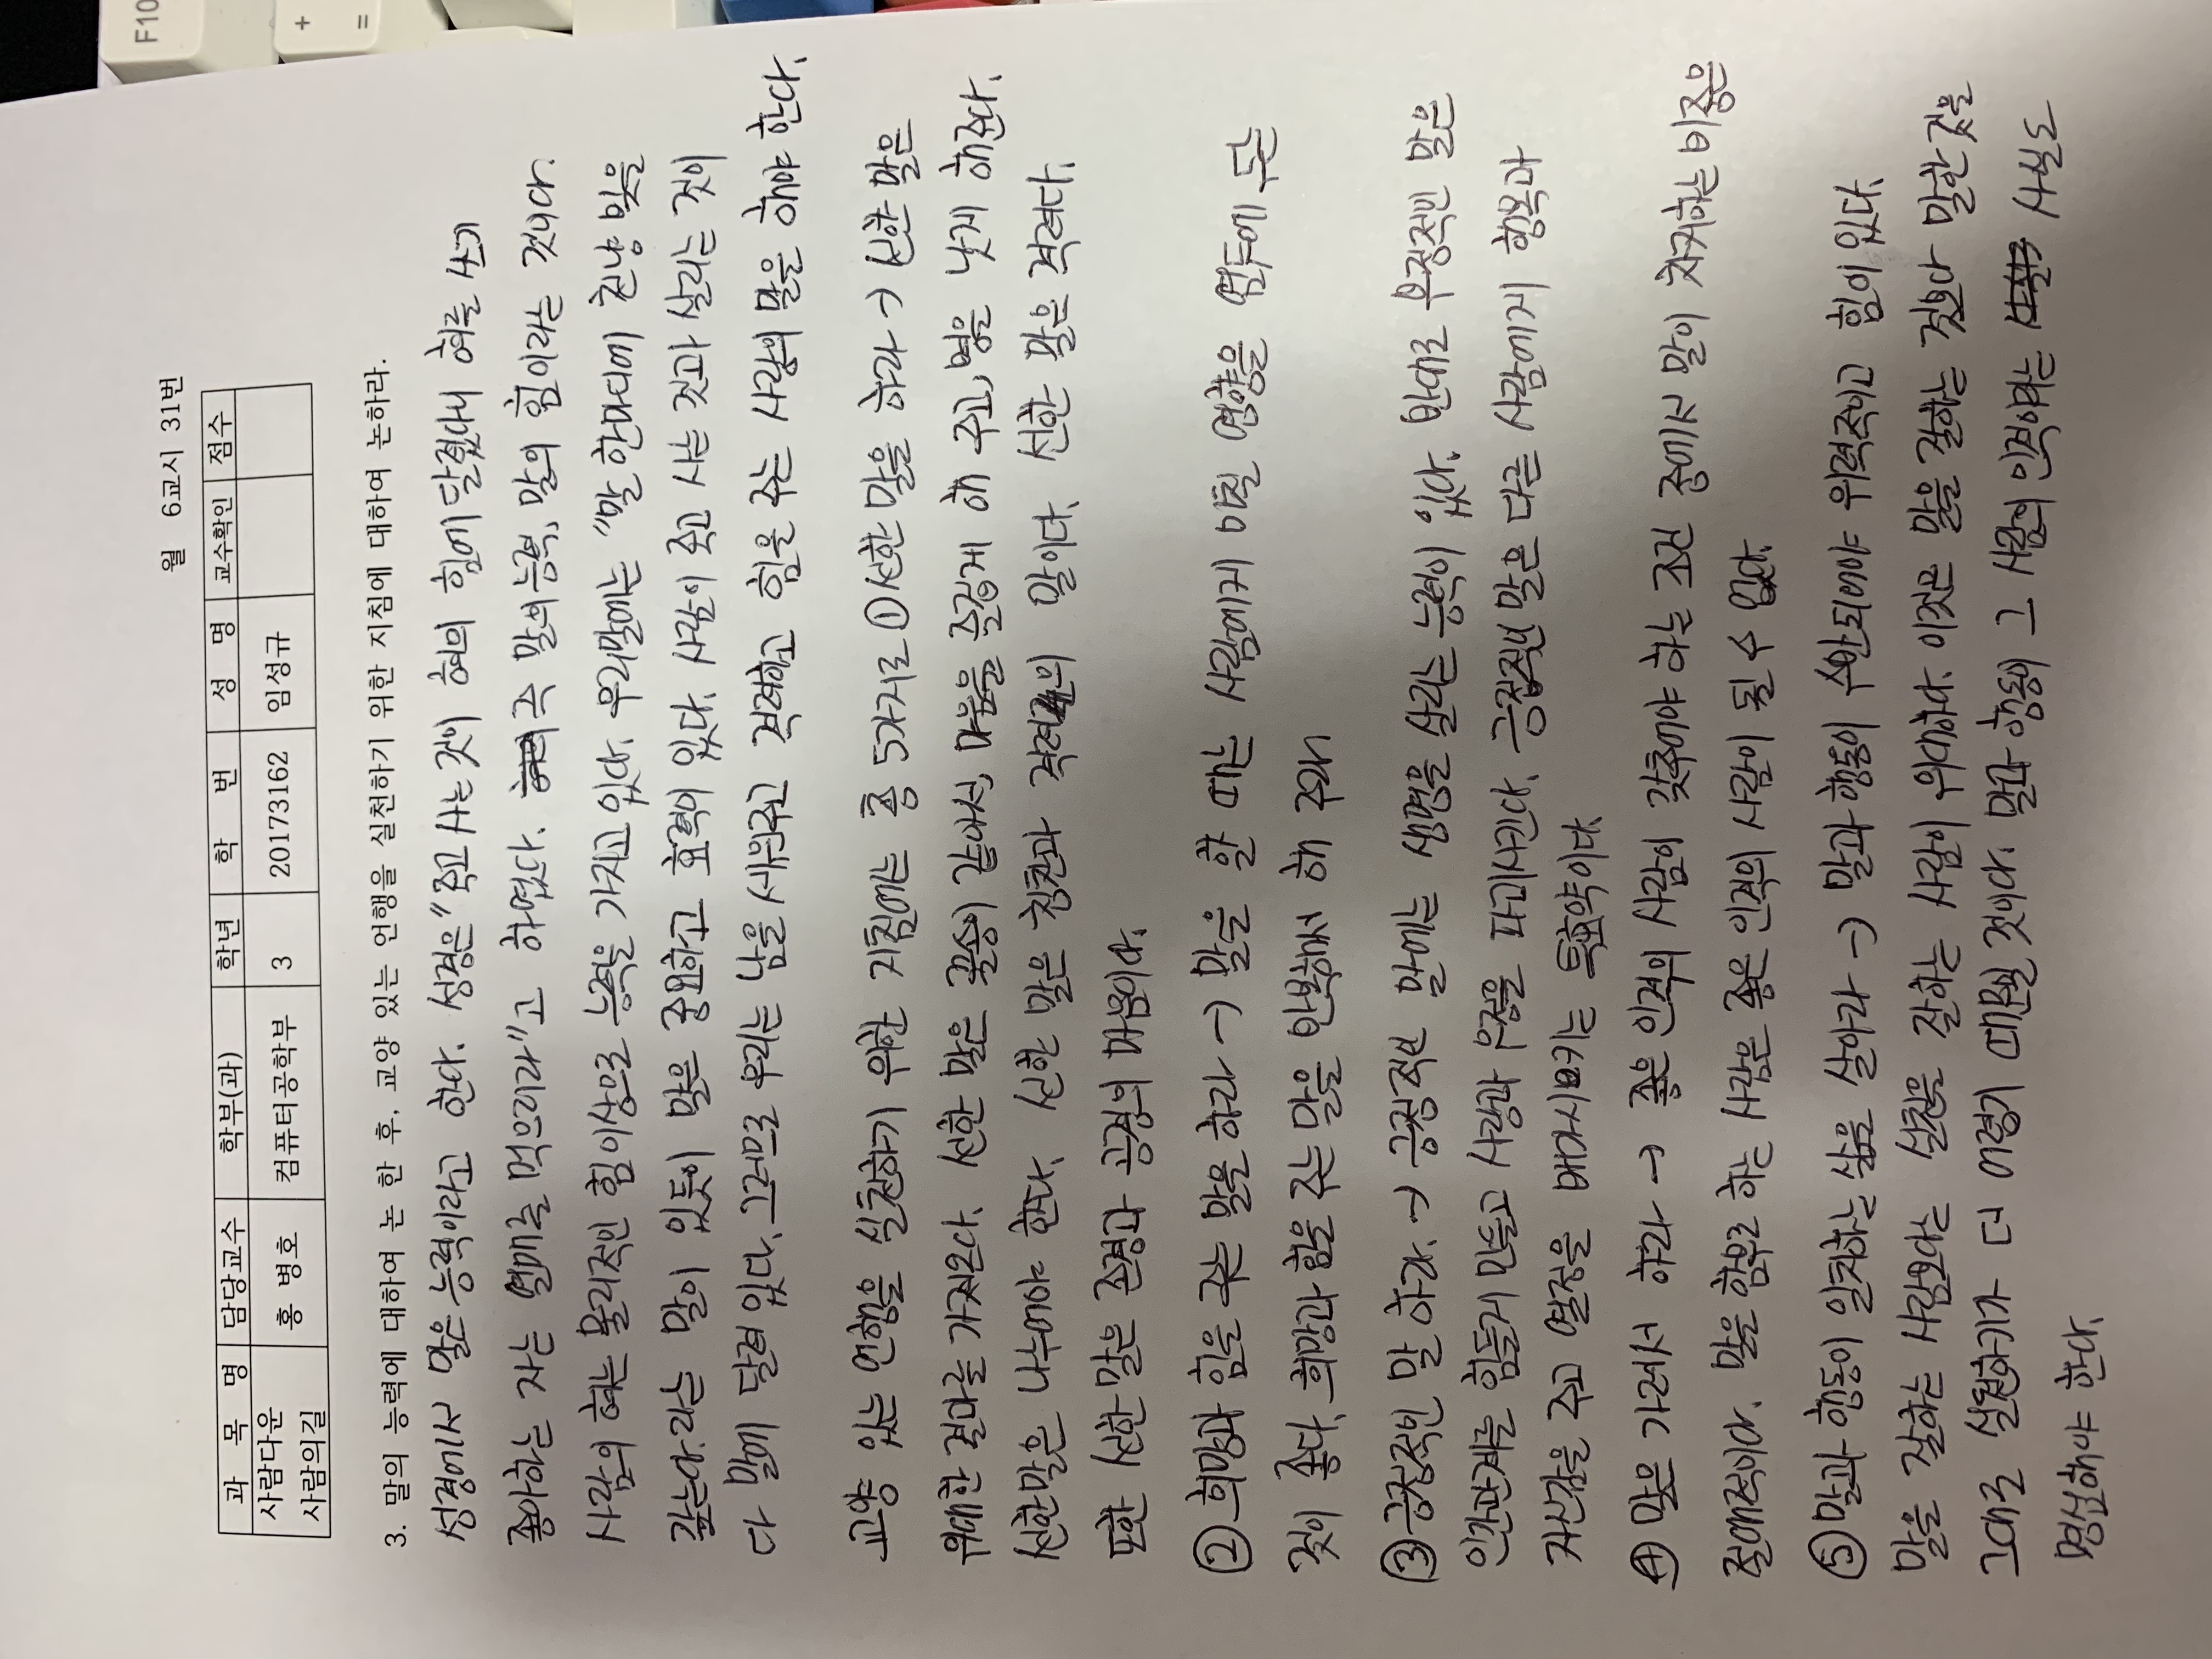 월 6교시 31번
과 목 명 담당교수 학부(과) 학년 학 번 성 명 교수확인 점수
사람다운 사람의길 홍 병호 컴퓨터공학부 3 20173162 임성규
3. 말의 능력에 대하여 논 한 후, 교양 있는 언행을 실천하기 위한 지침에 대하여 논하라.
성경에서 말은 능력이라고 한다. 성경은 "죽고 사는 것이 혀의 힘에 달렸다니 혀를 쓰기
좋아하는 자는 열매를 먹으리라"고 하였다. 즉 말의 능력, 말의 힘이라는 것이다.
사람의 혀는 물리적인 힘 이상으로 능력을 가지고 있다. 우리말에는 "말 한마디에 천냥 빚을
갚는다.라는 말이 있듯이 말은 중요하고 효력이 있다. 사람이 죽고 사는 것과 살리는 것이
다 말에 달려 있다. 그러므로 우리는 남을 세워주고 격려하고 힘을 주는 사랑의 말을 해야 한다.
교양 있는 언행을 실천하기 위한 지침에는 총 5가지로 ① 선한 말을 하라 → 선한 말은
위대한 결과를 가져온다. 선한 말은 꿀송이 같아서, 마음을 즐겁게 해 주고, 병을 낫게 해준다.
선한말은 나누어야 한다. 선한 말은 칭찬과 격려의 말이다. 선한 말은 격려다.
또한 선한 말은 존경과 공경의 마음이다.
② 희망과 힘을 주는 말을 하라 → 말을 할 때는 사람에게 미칠 영향을 염두에 두는
것이 좋다. 희망과 힘을 주는 말을 반복해서 해 주라
③ 긍정적인 말 하라. → 긍정적인 말에는 생명을 살리는 능력이 있다. 반대로 부정적인 말은
인간관계를 힘들게 만들고 사랑과 우정을 파괴시킨다. 긍정적인 말은 다른 사람에게 행복과
자신감을 주고 열정을 배가시키는 특효약이다.
④ 말은 가려서 하라 → 좋은 인격의 사람이 갖추어야 하는 조건 중에서 말이 차지하는 비중은
절대적이다. 말을 함부로 하는 사람은 좋은 인격의 사람이 될 수 없다.
⑤ 말과 행동이 일치하는 삶을 살아라 → 말과 행동이 수반되어야 위력적이고 힘이 있다.
말을 잘하는 사람보다는 실천을 잘하는 사람이 위대하다. 이것은 말을 잘하는 것보다 말한 것을
그대로 실천하기가 더 어렵기 때문일 것이다. 말과 행동이 그 사람의 인격이라는 사실도
명심해야 한다.
F10
+
=